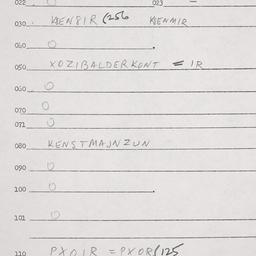 022 023
030 KENSIR (256 KENMIR
040
050 XOZIBALDERKONT = IR
060
070
071
080 KENSTMAJNZUN
090
100
101
110 PXOIR = PXOR(125